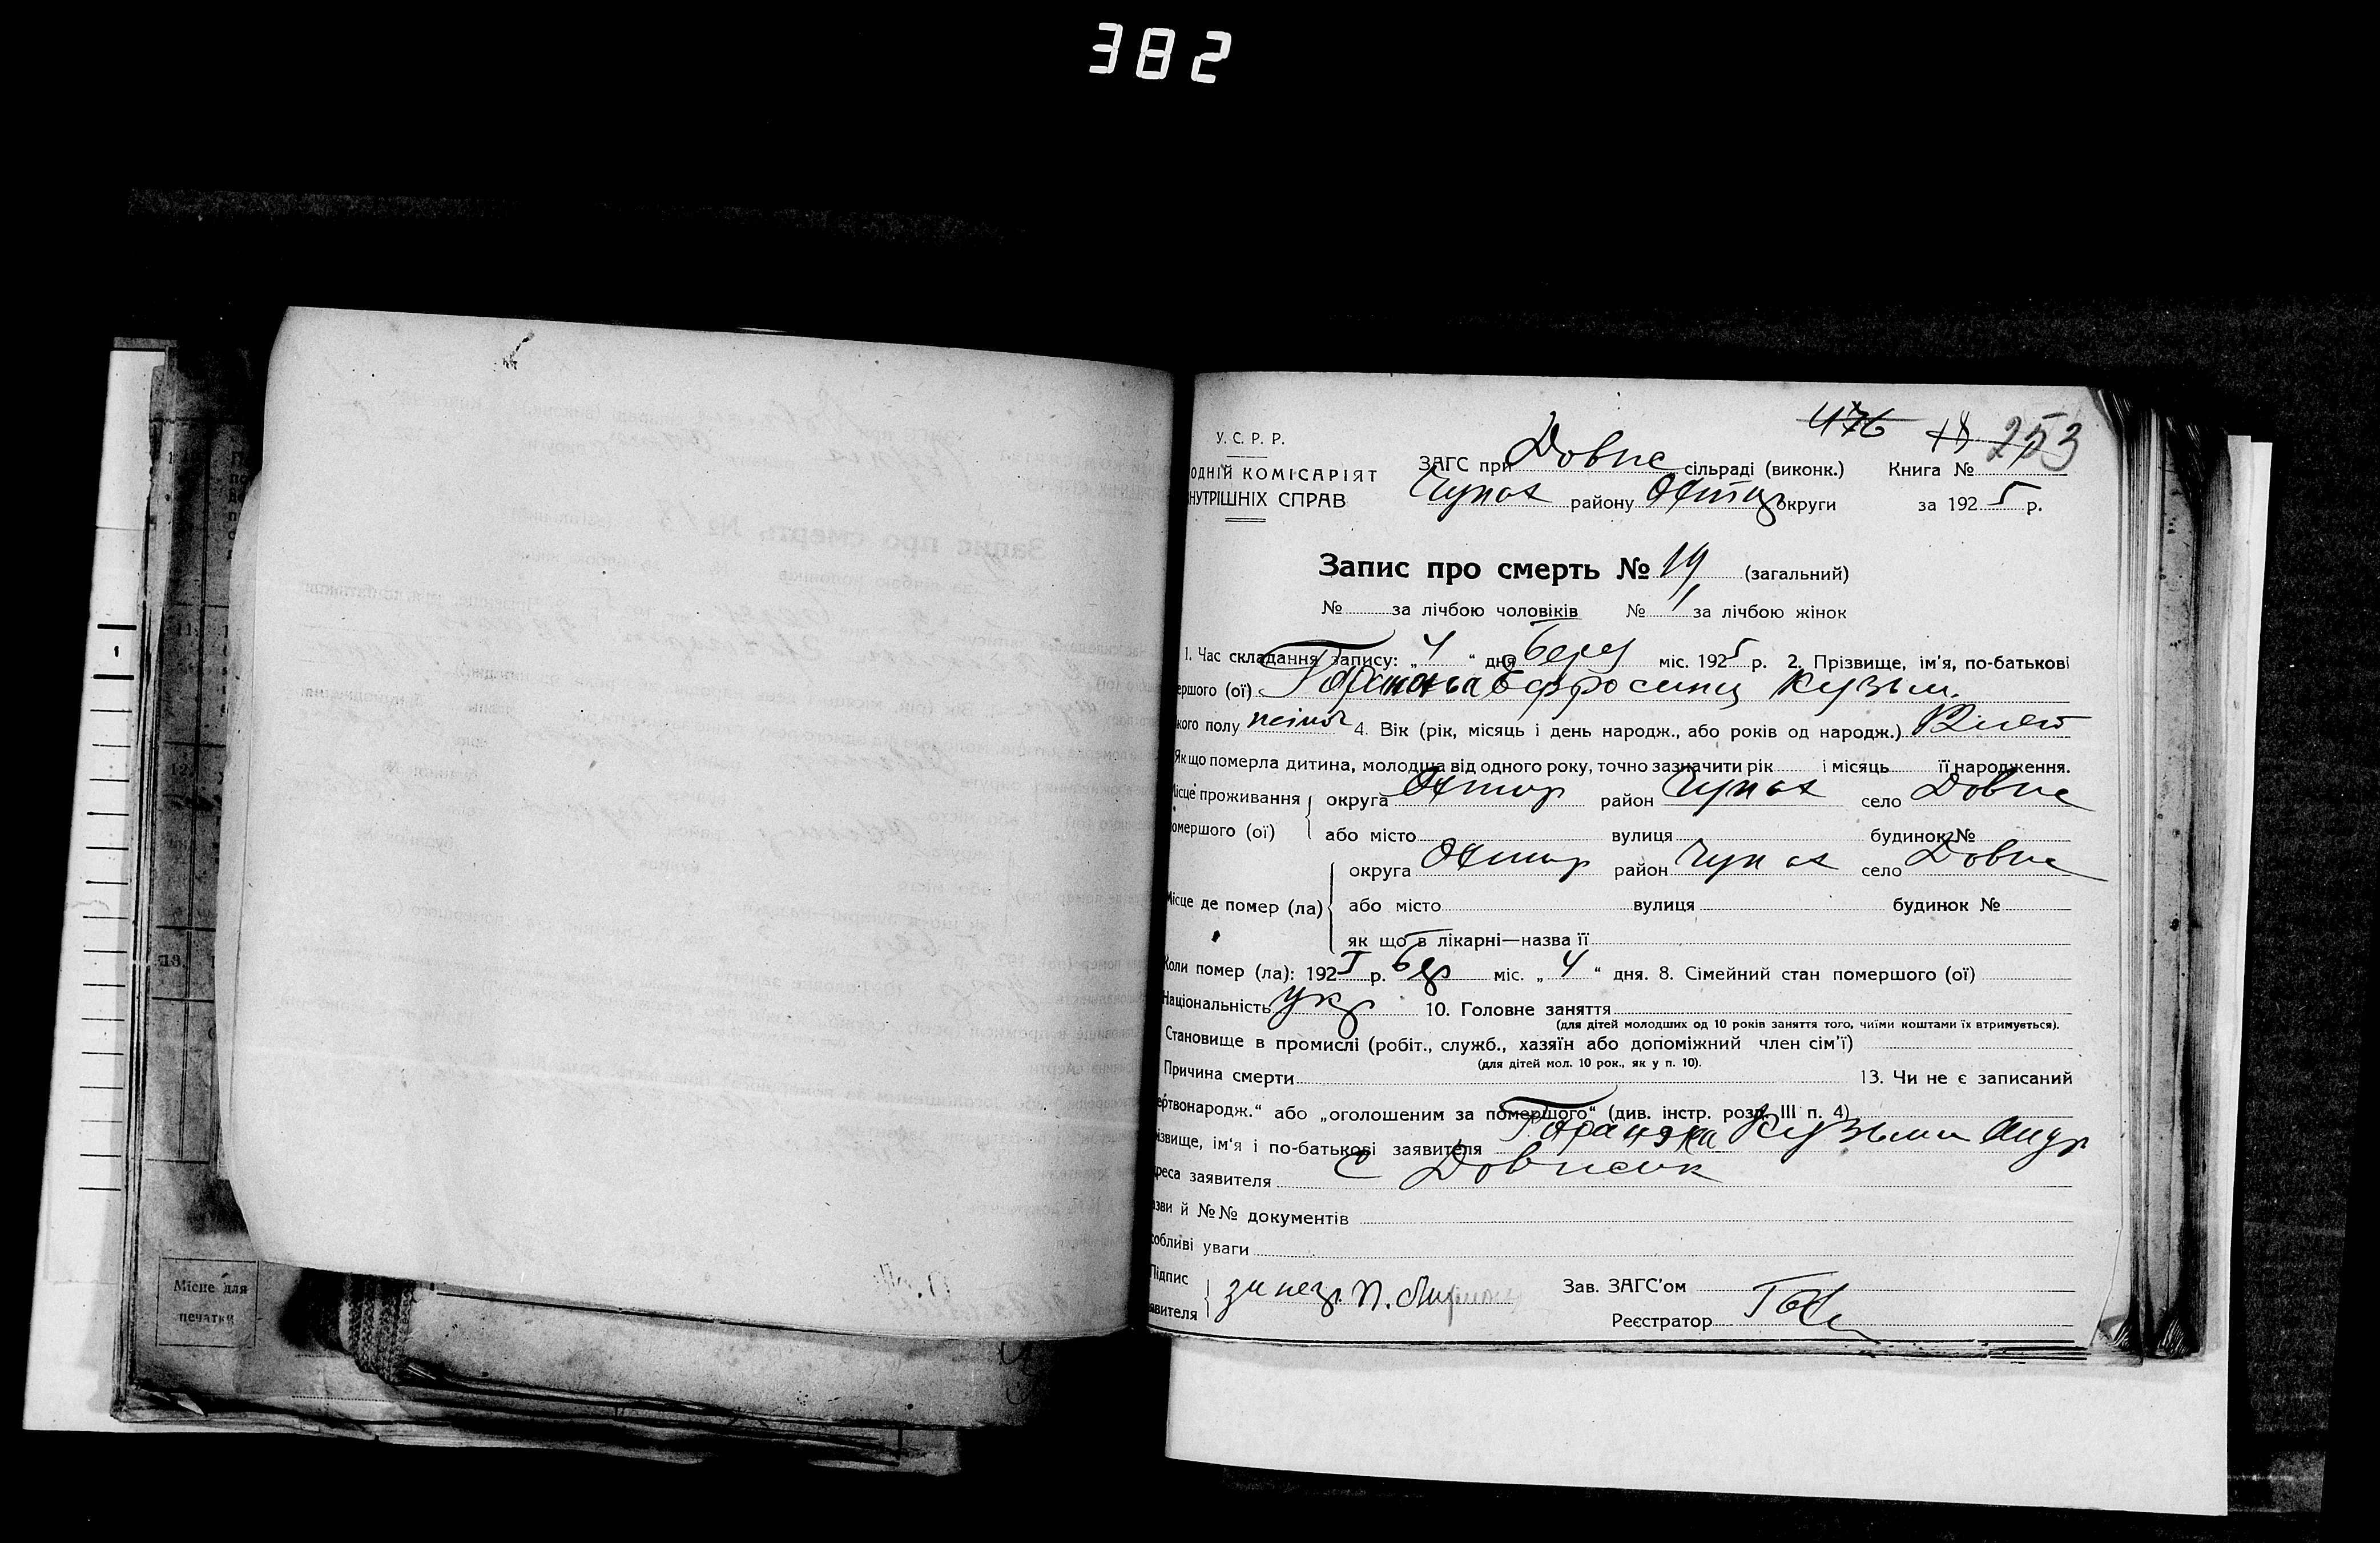 382
476 18 253
У. С. Р. Р.
ОДНІЙ КОМІСАРІЯТ
НУТРІШНІХ СПРАВ
ЗАГС при Довж сільраді (виконк.) Книга №
Чупах району Охтир округи за 1925 р.
Запис про смерть № 19 (загальний)
№ за лічбою чоловіків № 1 за лічбою жінок
1. Час складання запису: „4“ дня берез міс. 1925 р. 2. Прізвище, ім'я, по-батькові
ершого (ої) Ефросинія Кузьм.
кого полу жіноч 4. Вік (рік, місяць і день народж., або років од народж.)
Якщо померла дитина, молодша від одного року, точно зазначити рік і місяць її народження.
Місце проживання округа Охтир район Чупах село Довж
омершого (ої) або місто вулиця будинок №
округа Охтир район Чупах село Довж
Місце де помер (ла) або місто вулиця будинок №
як що в лікарні—назва її
Коли помер (ла): 1925 р. бер міс. „4“ дня. 8. Сімейний стан помершого (ої)
Національність укр 10. Головне заняття
(для дітей молодших од 10 років заняття того, чиїми коштами їх втримується).
Становище в промислі (робіт., служб., хазяїн або допоміжний член сім'ї)
(для дітей мол. 10 рок., як у п. 10).
Причина смерти 13. Чи не є записаний
ертвонародж.“ або „оголошеним за помершого“ (див. інстр. розд. III п. 4)
ізвище, ім'я і по-батькові заявителя Кузьма Андр
реса заявителя с Довжик
зви й №№ документів
обливі уваги
Підпис
явителя за нез. П.
Зав. ЗАГС'ом
Реєстратор
Місце для
печатки